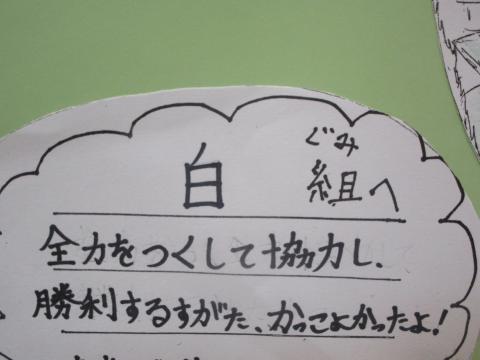 白組へ
ぐみ
全力をつくして協力し、
勝利するすがた、かっこよかったよ!